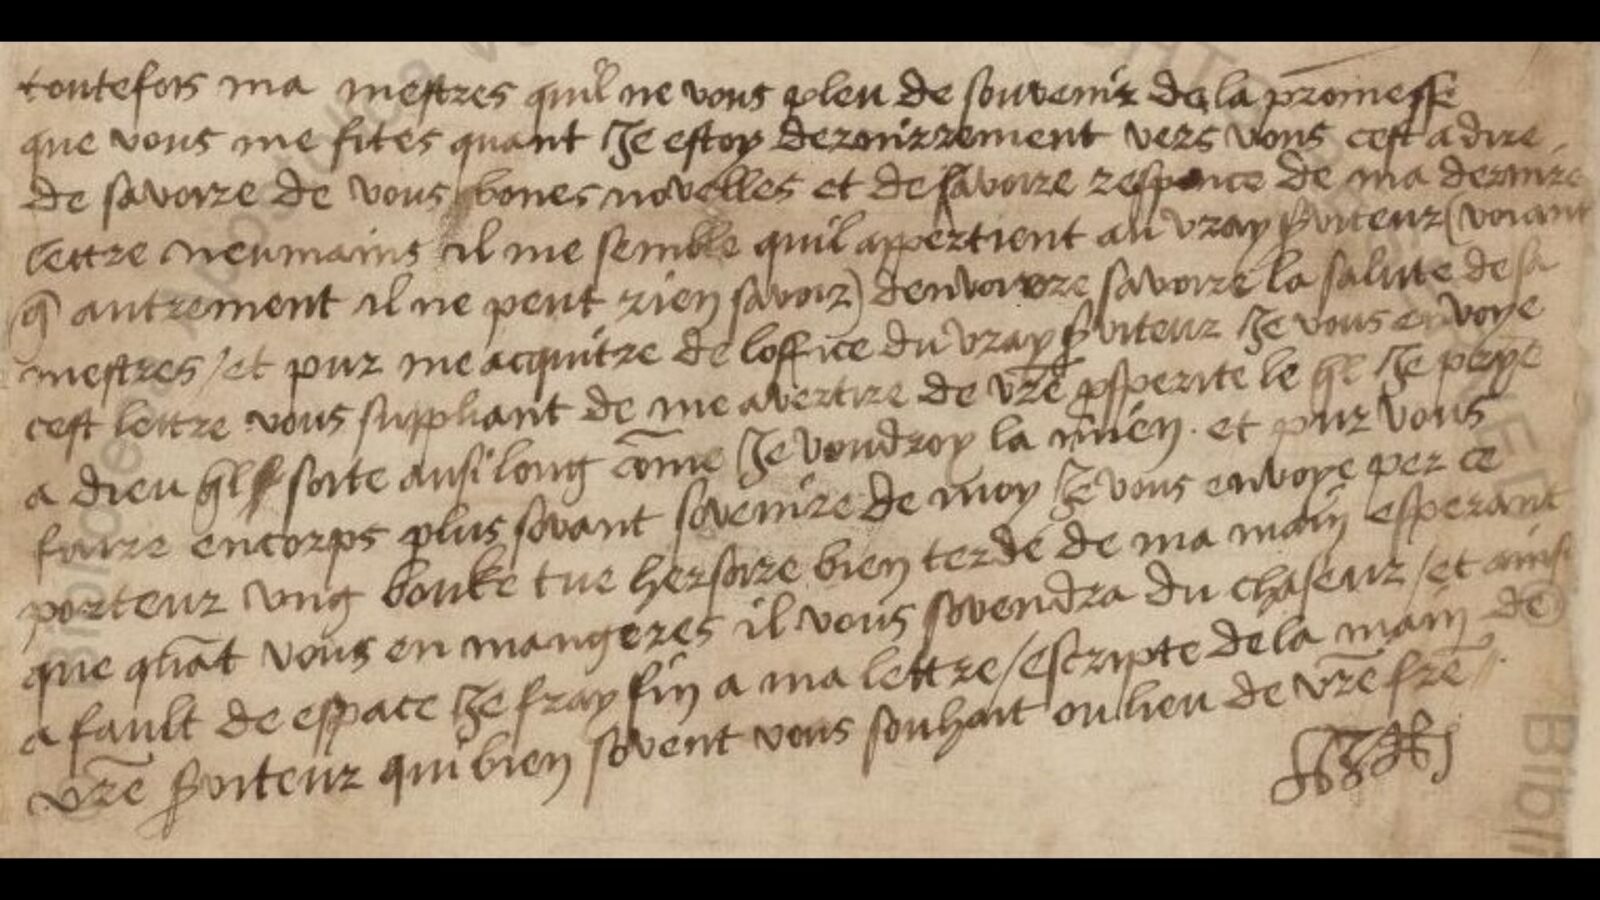 toutefois ma mestres quil ne vous pleu de souvenir de la promesse
que vous me fites quant Je estoy dernirrement vers vous cest a dire
de savoire de vous bones novelles et de savoire responce de ma dernire
lettre neumains il me semble quil appertient au vray serviteur (voiant
que autrement il ne peut rien savoir) denvoiere savoire la salute de sa
mestres / et pur me acquitre de loffice du vray serviteur Je vous envoye
cest lettre vous suppliant de me avertire de vre prosperite le quel Je prye
a dieu quel soite ausi long come Je voudroy la mien. et pur vous
faire encorps plus sovant sovenire de moy Je vous envoye per ce
porteur ung bouke tue hersoire bien terde de ma main esperant
que quant vous en mangeres il vous sovendra du chaseur / et ainsi
a fault de espace Je fray fin a ma lettre / escripte de la main de
vre serviteur qui bien sovent vous souhait ou lieu de vre frere